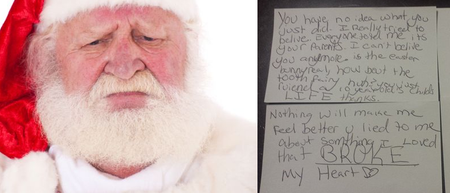 You have no idea what you
just did. I Really tried to
belive Everyone told me its
your Parents. I can't belive
you anymore. is the Easter
bunny real, how about the
tooth Fairy huh? You just
ruiened a 10 year old's Childs
LIFE thanks.
Nothing will make me
Feel better u lied to me
about something I Loved
that BROKE
My Heart